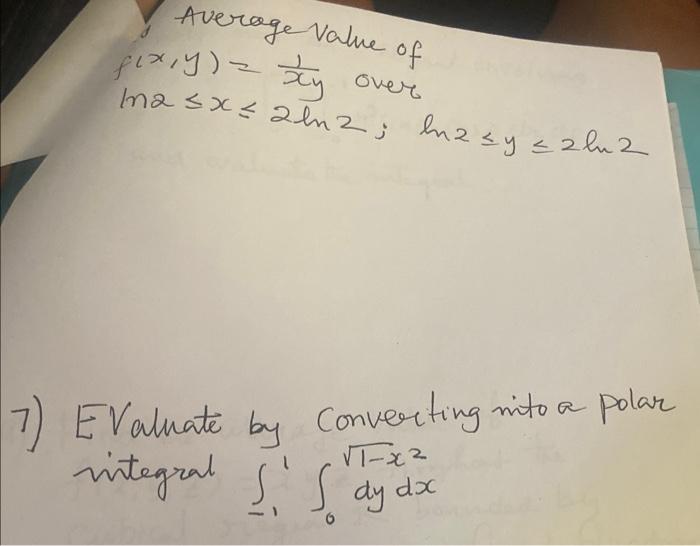 Average Value of
f(x,y) = 1/xy over
ln2 ≤ x ≤ 2ln2; ln2 ≤ y ≤ 2ln2
7) EValuate by Converting into a polar
integral ∫_{-1}^{1} ∫_{0}^{√1-x²} dy dx